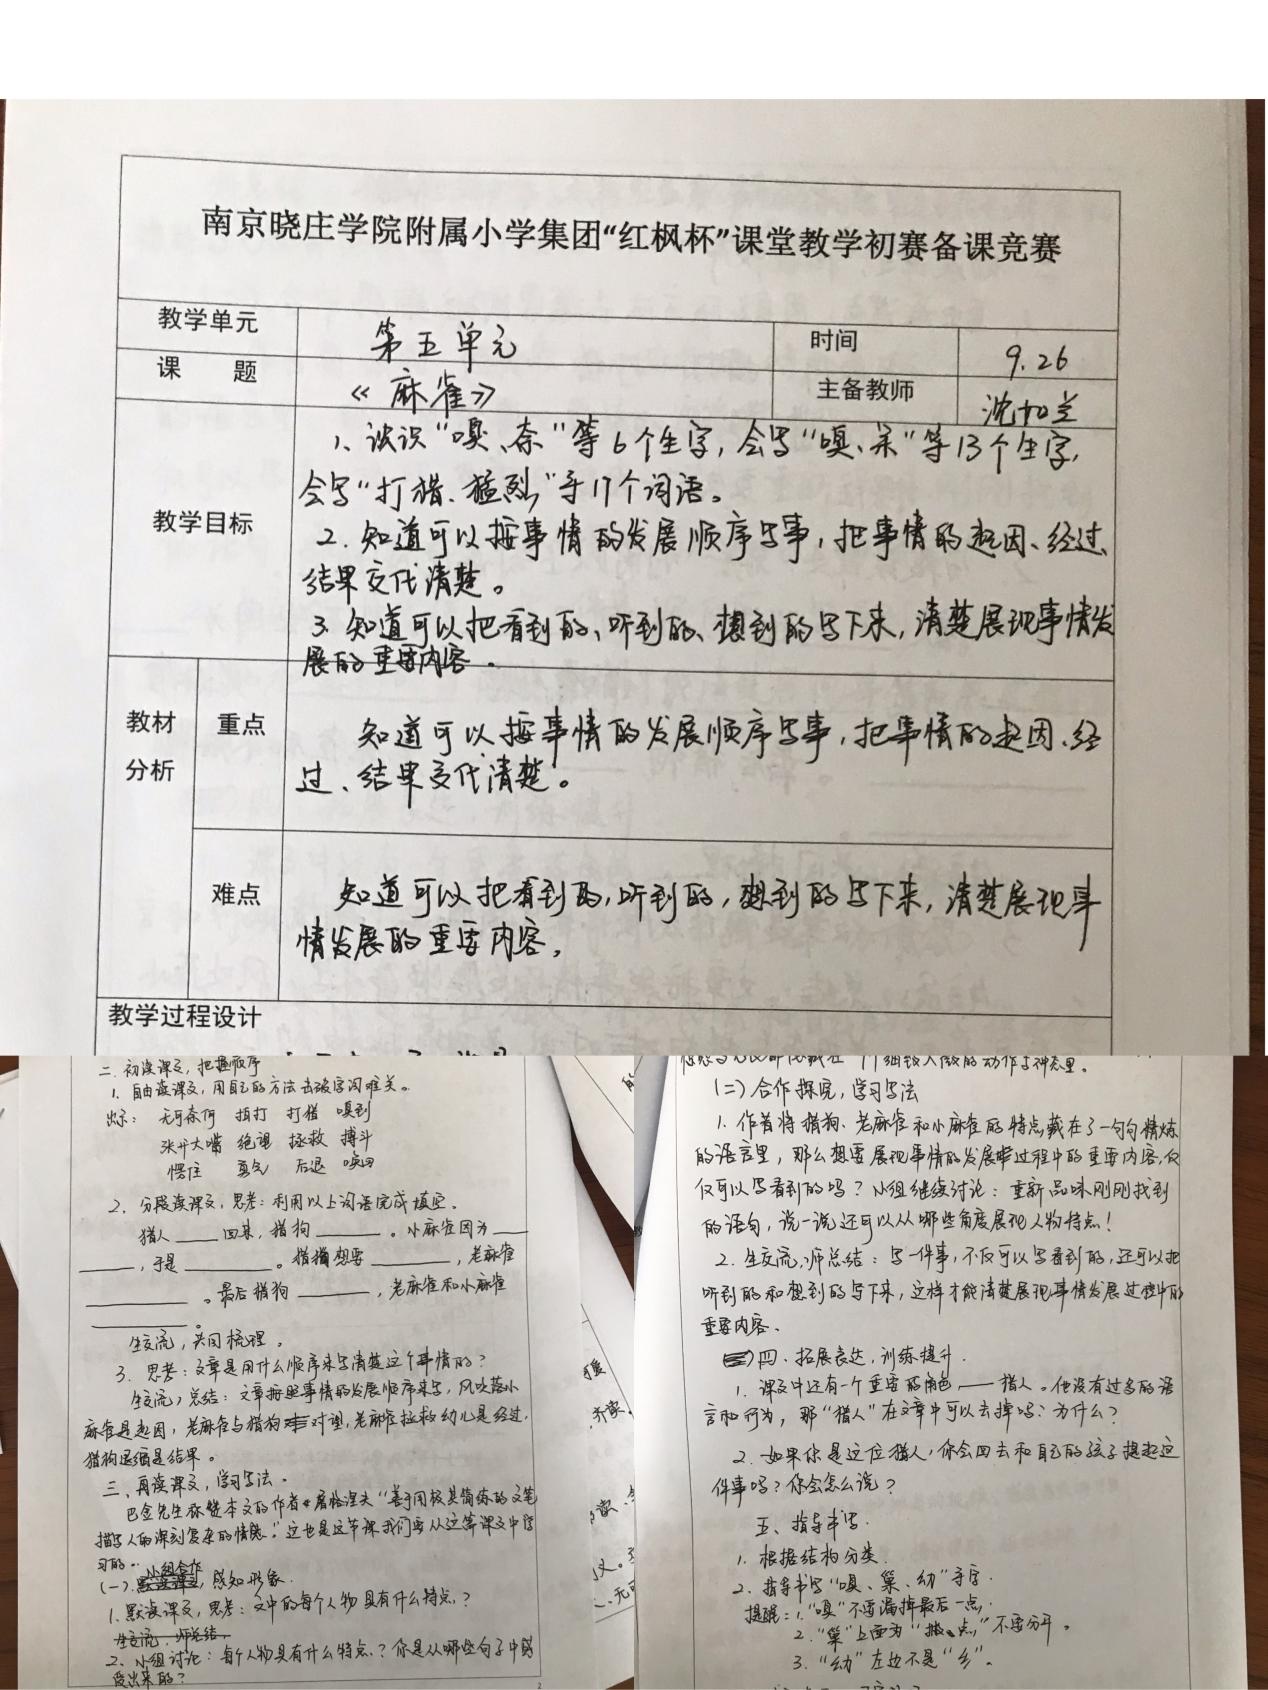 南京晓庄学院附属小学集团“红枫杯”课堂教学初赛备课竞赛
教学单元 第五单元 时间 9.26
课 题 《麻雀》 主备教师
教学目标
1、认识“嗅、奈”等6个生字,会写“嗅、呆”等13个生字,
会写“打猎、猛烈”等17个词语。
2.知道可以按事情的发展顺序写事,把事情的起因、经过、
结果交代清楚。
3.知道可以把看到的、听到的、想到的写下来,清楚展现事情发
展的重要内容。
教材分析
重点
知道可以按事情的发展顺序写事,把事情的起因、经
过、结果交代清楚。
难点
知道可以把看到的,听到的,想到的写下来,清楚展现事
情发展的重要内容。
教学过程设计
二.初读课文,把握顺序
1.自由读课文,用自己的方法去破字词难关。
出示: 无可奈何 拍打 打猎 嗅到
张开大嘴 绝望 拯救 搏斗
愣住 勇气 后退 唤回
2.分段读课文,思考:利用以上词语完成填空。
猎人____回来,猎狗____。小麻雀因为____
____,于是____。猎狗想要____,老麻雀
____。最后猎狗____,老麻雀和小麻雀
____。
生交流,共同梳理。
3.思考:文章是用什么顺序来写清楚这个事情的?
生交流,总结:文章按照事情的发展顺序来写,风吹落小
麻雀是起因,老麻雀与猎狗对望,老麻雀拯救幼儿是经过,
猎狗退缩是结果。
三、再读课文,学习写法。
巴金先生称赞本文的作者《屠格涅夫“善于用极其简练的文笔
描写人的深刻复杂的情感。”这也是这节课我们要从这篇课文中学
习的。
小组合作
(一).默读课文,感知形象.
1.默读课文,思考:文中的每个人物具有什么特点?
生交流.师总结,
2.小组讨论:每个人物具有什么特点?你是从哪些句子中感
受出来的?
2
动作与神态里。
(二)合作探究,学习写法
1.作者将猎狗、老麻雀和小麻雀的特点藏在了一句句精炼
的语言里,那么想要展现事情的发展过程中的重要内容,仅
仅可以写看到的吗?小组继续讨论:重新品味刚刚找到
的语句,说一说还可以从哪些角度展现人物特点!
2.生交流,师总结:写一件事,不仅可以写看到的,还可以把
听到的和想到的写下来,这样才能清楚展现事情发展过程中的
重要内容.
四、拓展表达,训练提升.
1.课文中还有一个重要的角色——猎人。他没有过多的语
言和行为,那“猎人”在文章中可以去掉吗?为什么?
2.如果你是这位猎人,你会回去和自己的孩子提起这
件事吗?你会怎么说?
五、指导书写.
1.根据结构分类.
2.指导书写“嗅、巢、幼”等字.
提醒:1.“嗅”不要漏掉最后一点,
2.“巢”上面为“撇、点,”不要分开。
3.“幼”左边不是“乡”。